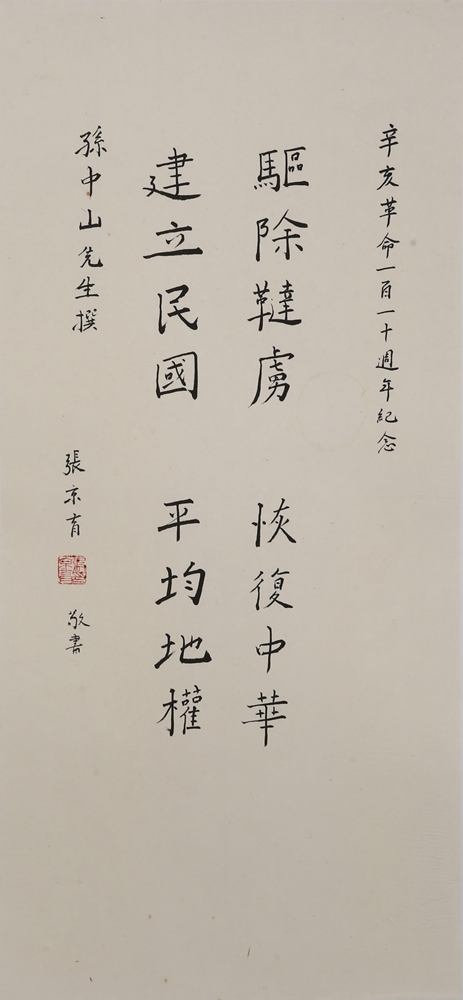 辛亥革命一百一十週年紀念
驅除韃虜 恢復中華
建立民國 平均地權
孫中山先生撰
張京育 敬書